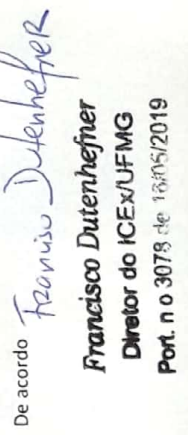 De acordo
Francisco Dutenhefner
Francisco Dutenhefner
Diretor do ICEx/UFMG
Port. n o 3078 de 13/05/2019